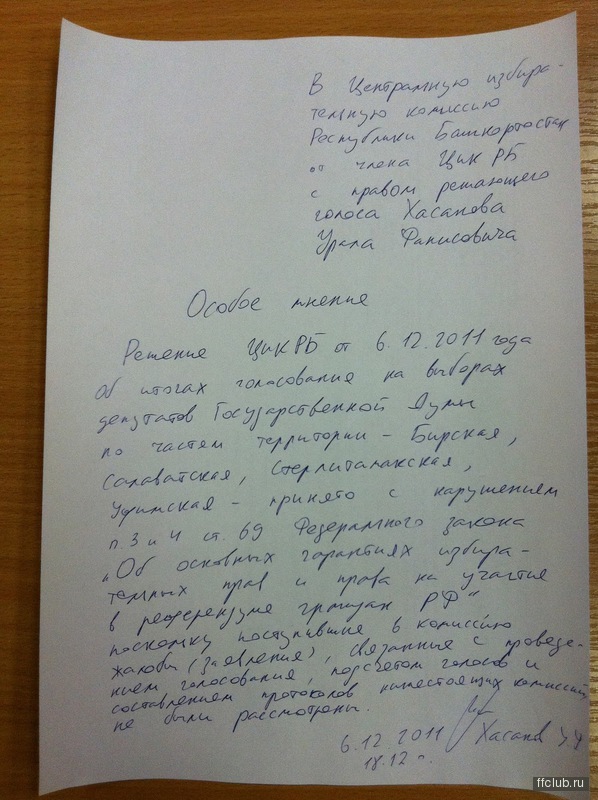 В Центральную избира-
тельную комиссию
Республики Башкортостан
от члена ЦИК РБ
с правом решающего
голоса Хасанова
Урала Фанисовича
Особое мнение
Решение ЦИК РБ от 6.12.2011 года
об итогах голосования на выборах
депутатов Государственной Думы
по частям территории - Бирская,
Салаватская, Стерлитамакская,
Уфимская - принято с нарушением
п.3 и 4 ст. 69 Федерального закона
"Об основных гарантиях избира-
тельных прав и права на участие
в референдуме граждан РФ"
поскольку поступившие в комиссию
жалобы (заявления), связанные с проведе-
нием голосования, подсчетом голосов и
составлением протоколов нижестоящих комиссий
не были рассмотрены.
6.12.2011 Хасанов У.Ф.
18.12 ч.
ffclub.ru